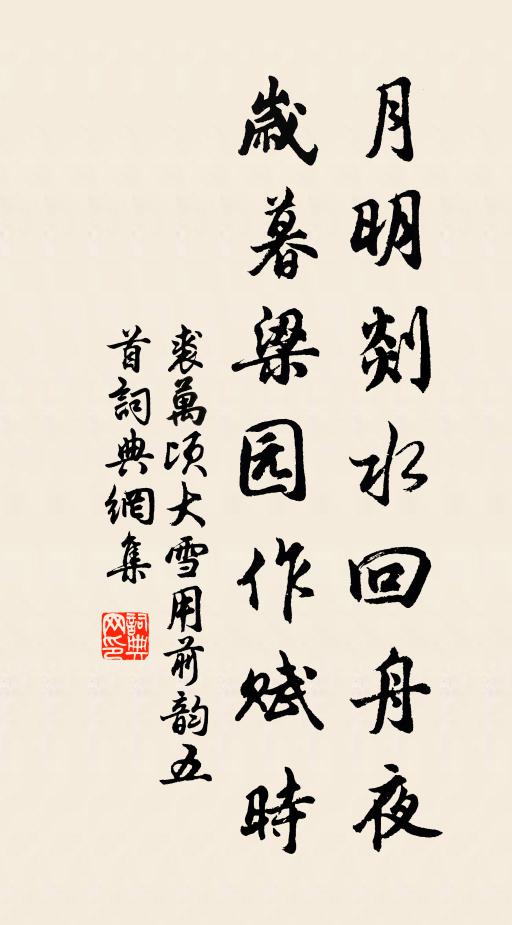 月明剡水回舟夜
歲暮梁园作赋時
裘萬頃大雪用前韵五
首詞典網集
詞典网印